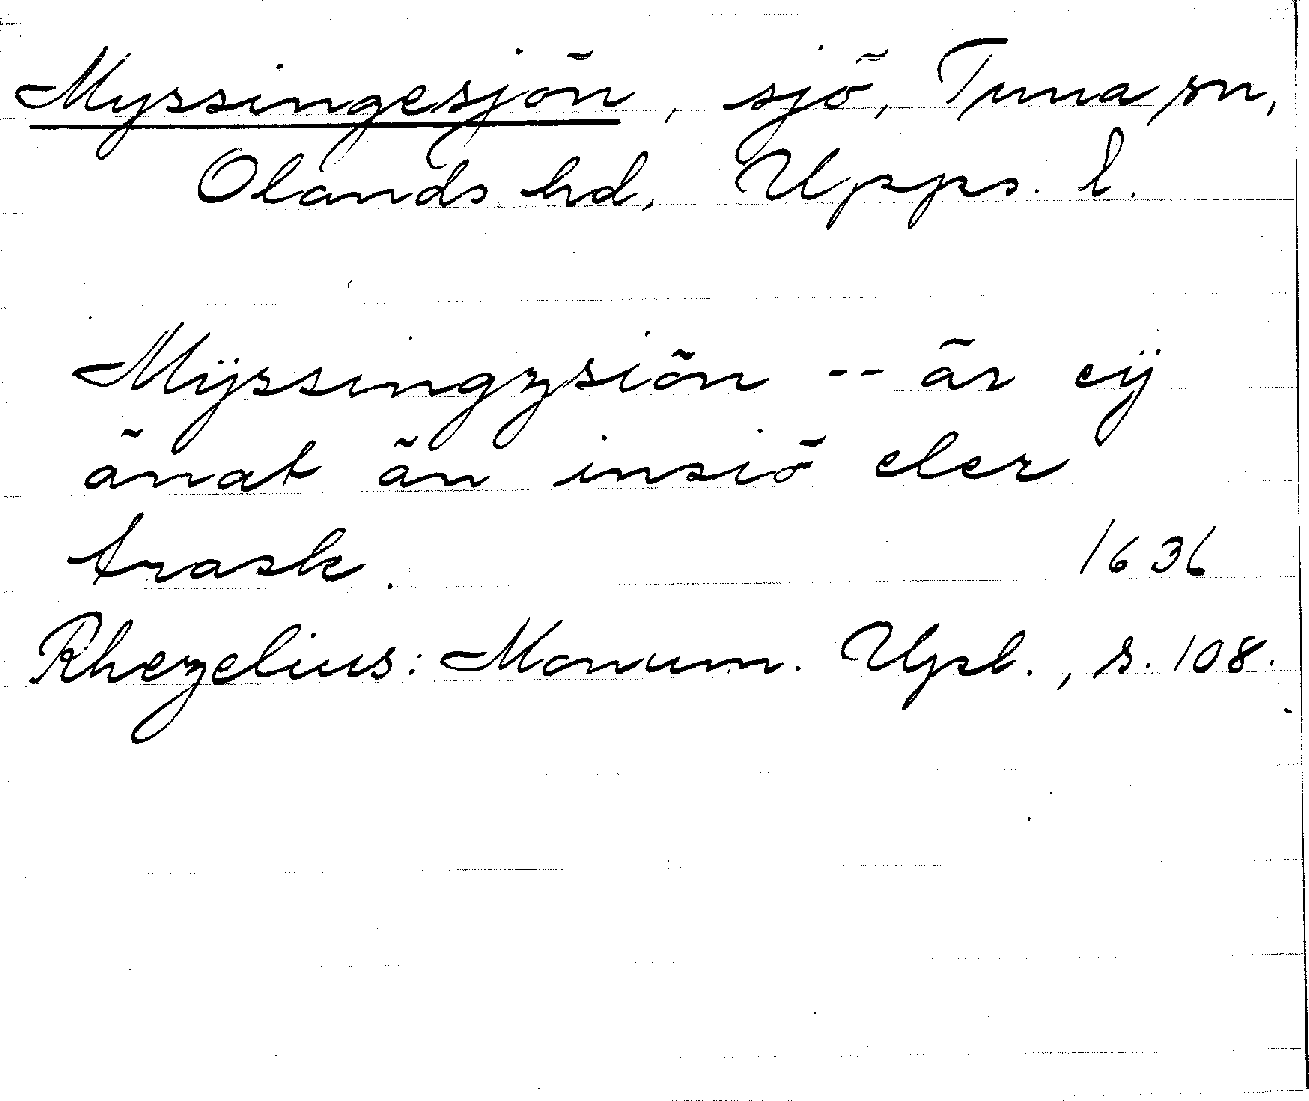 Myssingesjön, sjö, Tuna sn,
Olands hd, Upps. l.
Mÿssingzsiön -- är eÿ
änat än insiö eler
trask. 1636
Rhezelius: Monum. Upl., s. 108.